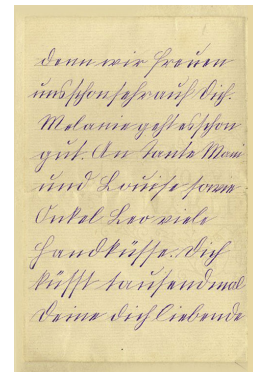 denn wir freuen
uns schon sehr auf Dich.
Melanie geht es schon
gut. An Tante Mari
und Louise sowie
Onkel Leo viele
Handküsse. Dich
küsst tausendmal
Deine Dich liebende